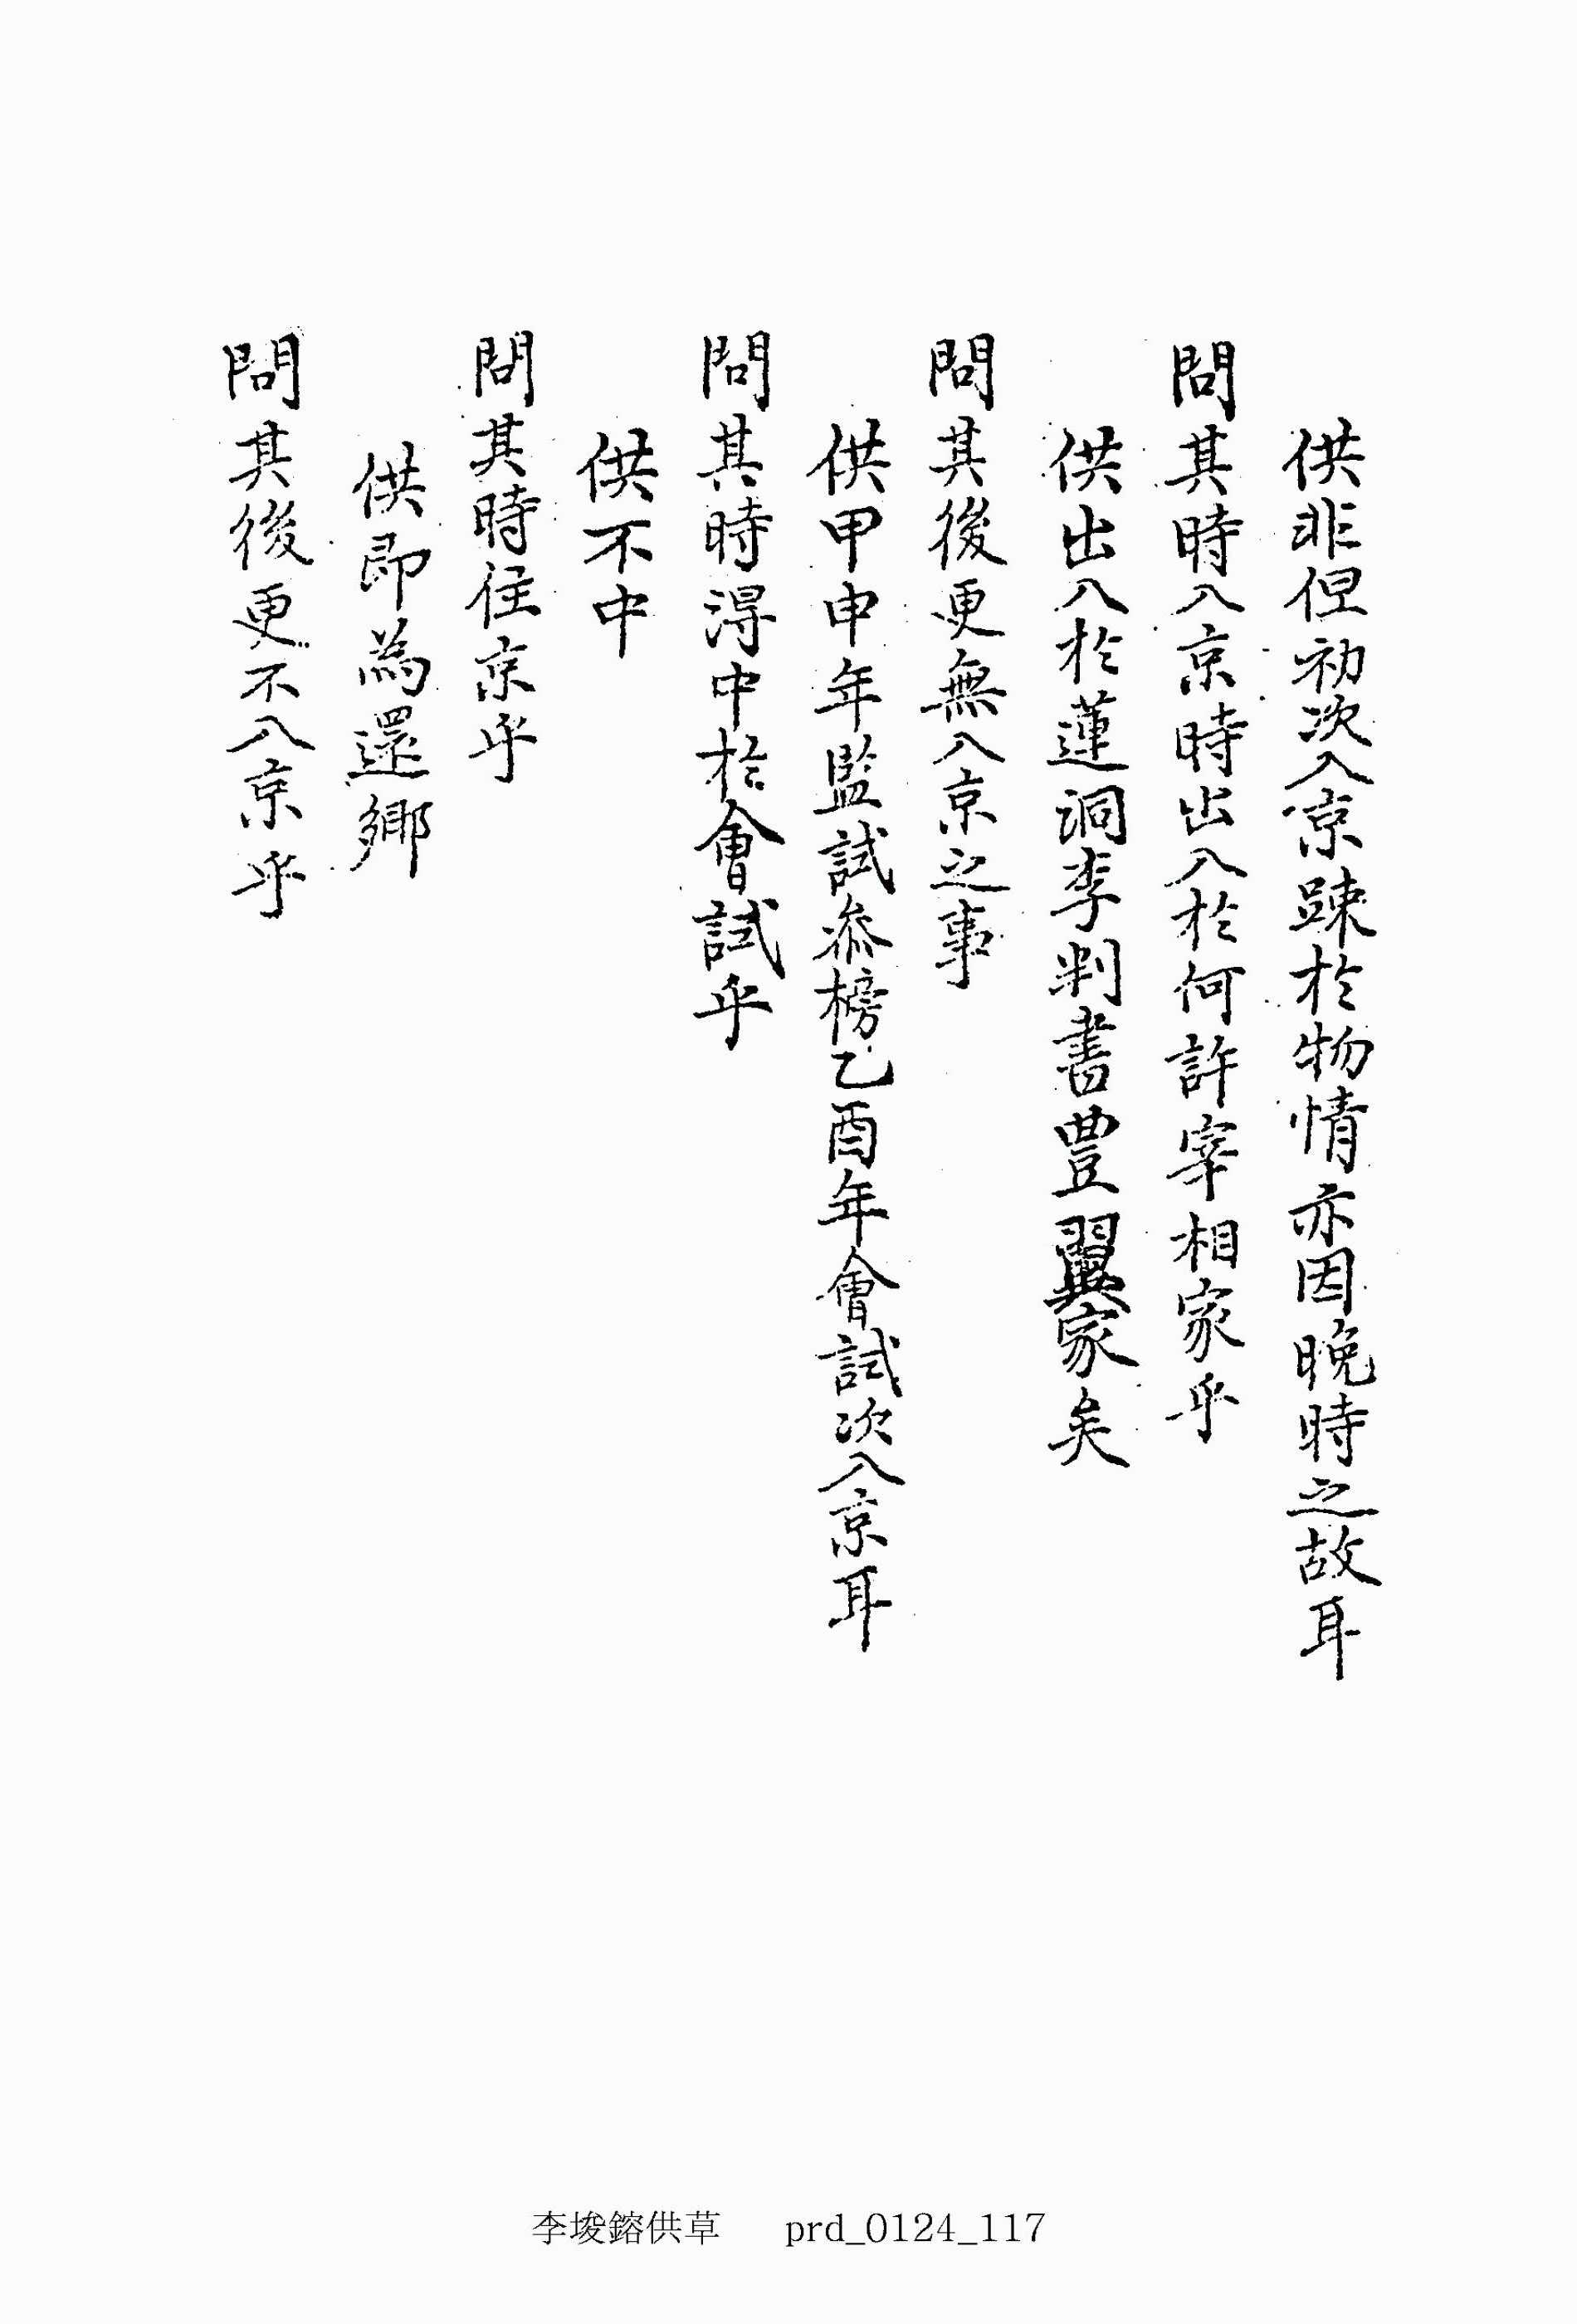 供非但初次入京踈於物情亦因晚時之故耳
問其時入京時出入於何許宰相家乎
供出入於蓮洞李判書豊翼家矣
問其後更無入京之事
供甲申年監試叅榜乙酉年會試次入京耳
問其時得中於會試乎
供不中
問其時住京乎
供即為還鄕
問其後更不入京乎
李埈鎔供草 prd_0124_117